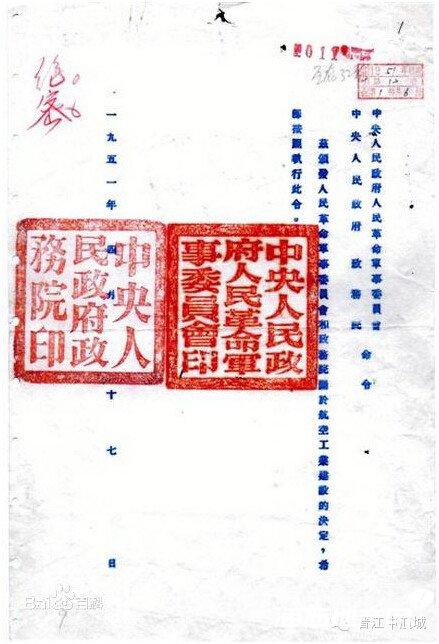 1
中央人民政府人民革命軍事委員會
中央人民政府政務院 命令
茲頒發人民革命軍事委員會和政務院關於航空工業建設的決定,希
即按照執行此令。
中央人民政
府人民革命軍
事委員會印
一九五一年四月十七日
中央人
民政府政
務院印
绝密
Baidu百科